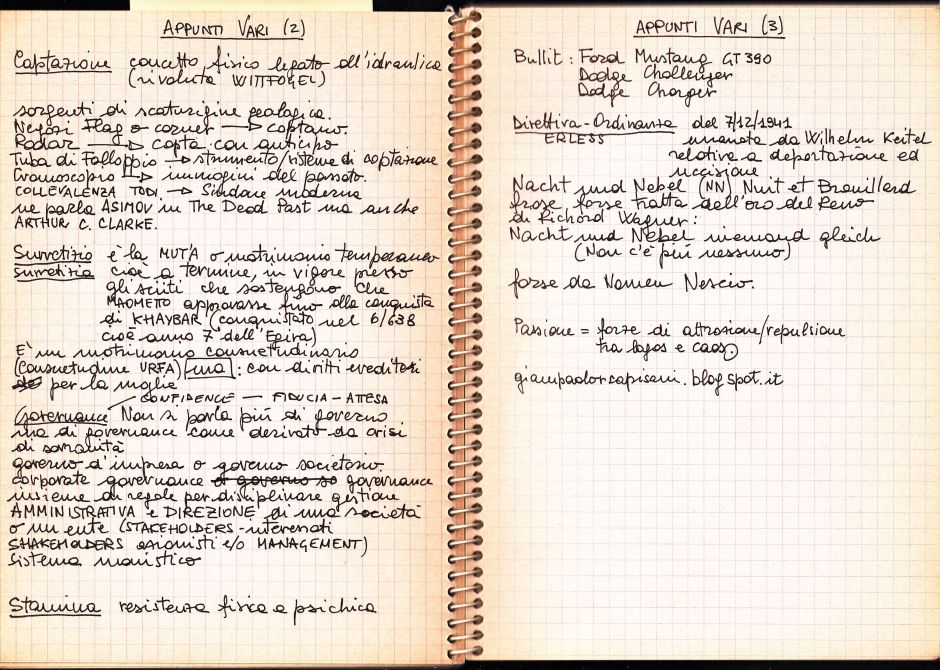 APPUNTI VARI (2)
Captazione concetto fisico legato all'idraulica
(rivoluta WITTFOGEL)
sorgenti di scaturigine geologica.
Negozi Flag o corner → captano.
Radar → capta con anticipo
Tuba di Falloppio → strumento/sistema di captazione
Cronoscopio → immagini del passato.
COLLEVALENZA TODI → Sindone moderna
ne parla ASIMOV in The Dead Past ma anche
ARTHUR C. CLARKE.
è la MUT'A o matrimonio temporaneo
cioè a termine, in vigore presso
gli sciiti che sostengono che
MAOMETTO approvasse fino alla conquista
di KHAYBAR (conquistato nel 6/638
cioè anno 7° dell'Egira)
E' un matrimonio consuetudinario
(consuetudine URFA) ma : con diritti ereditari
per la moglie
CONFIDENCE — FIDUCIA - ATTESA
Governance Non si parla più di governo
ma di governance come derivato da crisi
di sovranità
governo d'impresa o governo societario.
corporate governance o governo so governance
insieme di regole per disciplinare gestione
AMMINISTRATIVA e DIREZIONE di una società
o un ente (STAKEHOLDERS - interessati
SHAKEHOLDERS azionisti e/o MANAGEMENT)
Sistema monistico
Stamina resistenza fisica e psichica
APPUNTI VARI (3)
Bullit : Ford Mustang GT 390
Dodge Challenger
Dodge Charger
Direttiva-Ordinanza del 7/12/1941
ERLESS emanata da Wilhelm Keitel
relativa a deportazione ed
uccisione
Nacht und Nebel (NN) Nuit et Brouillard
frase forse tratta dell'oro del Reno
di Richard Wagner:
Nacht und Nebel niemand gleich
(Non c'è più nessuno)
forse da Nomen Nescio.
Passione = forze di attrazione/repulsione
tra logos e caos.
giampaolorcapisani.blogspot.it